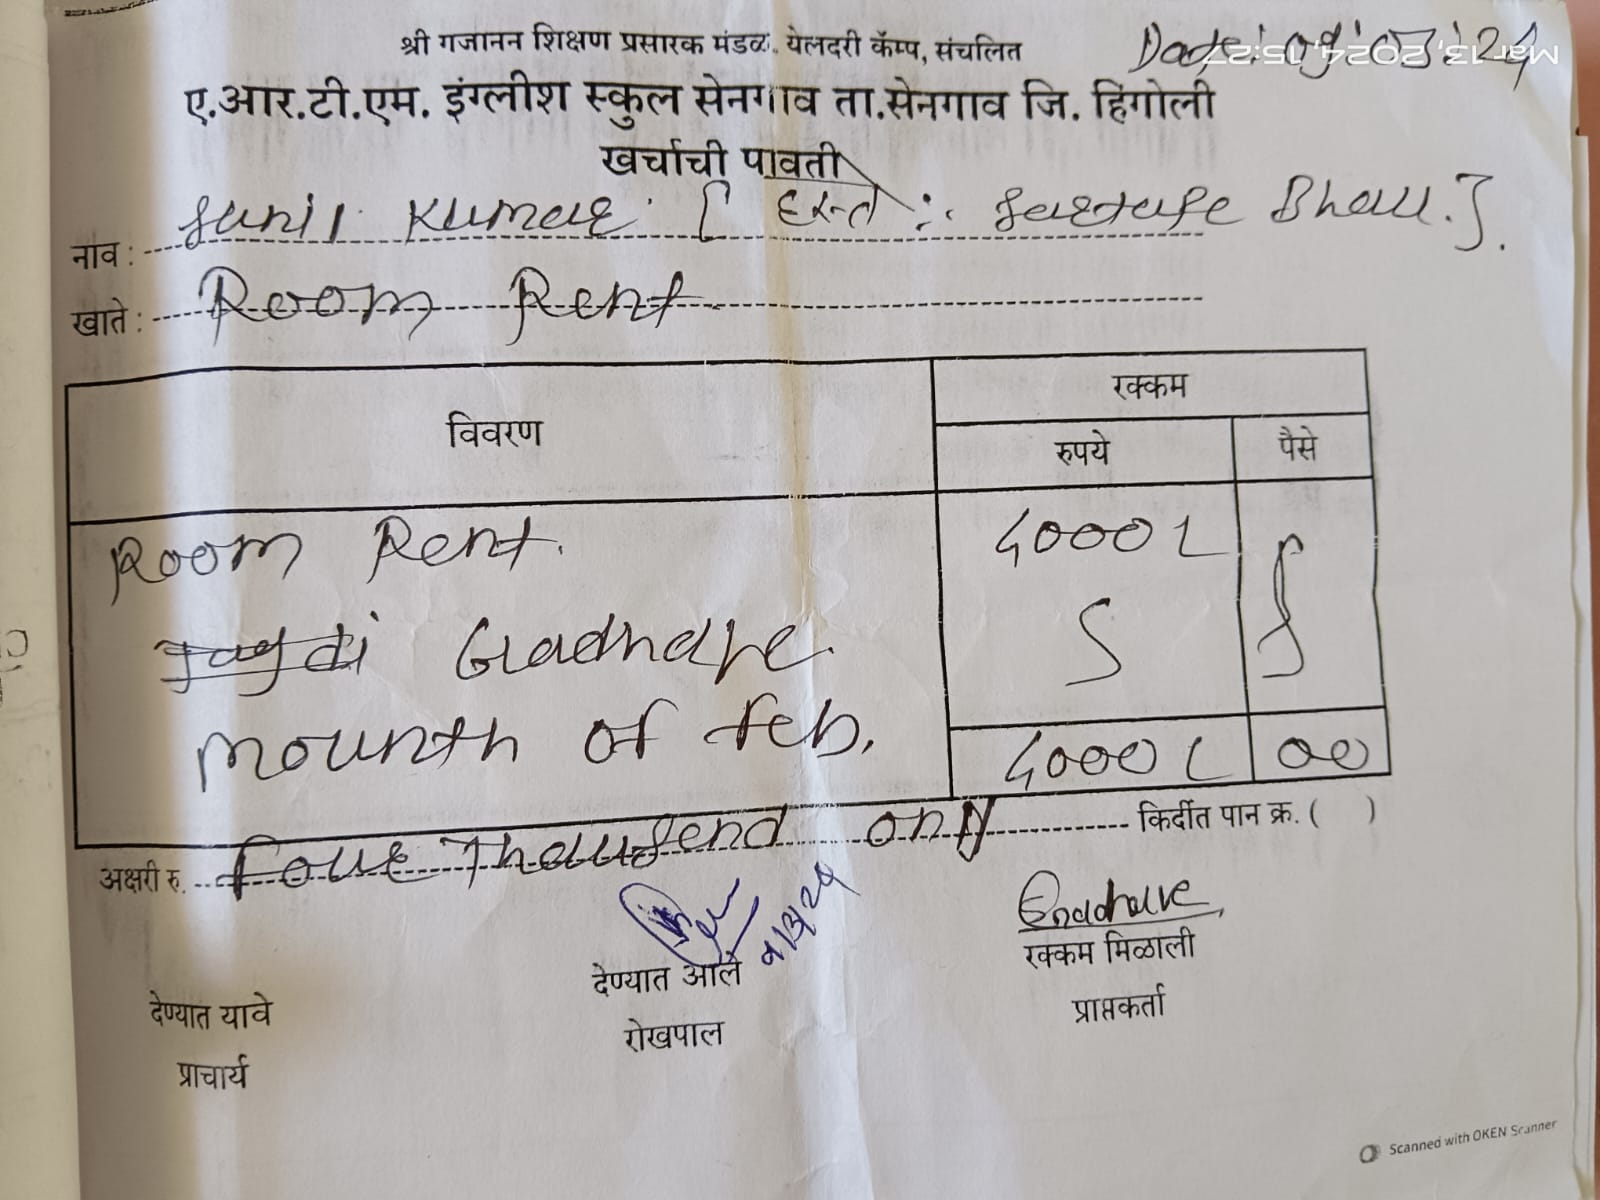 श्री गजानन शिक्षण प्रसारक मंडळ. येलदरी कॅम्प, संचलित
Date: 09:03:24
Mar 13, 2024, 15:27
ए.आर.टी.एम. इंग्लीश स्कुल सेनगाव ता.सेनगाव जि. हिंगोली
खर्चाची पावती
नाव : Sunil Kumar [ हस्ते :. Bhau.].
खाते : Room Rent
विवरण रक्कम
रुपये पैसे
Room Rent. 4000
Gadhave.
mounth of feb.
4000 00
अक्षरी रु. Four Thousend only किर्दीत पान क्र. ( )
Gadhave
देण्यात आले रक्कम मिळाली
देण्यात यावे रोखपाल प्राप्तकर्ता
प्राचार्य
Scanned with OKEN Scanner